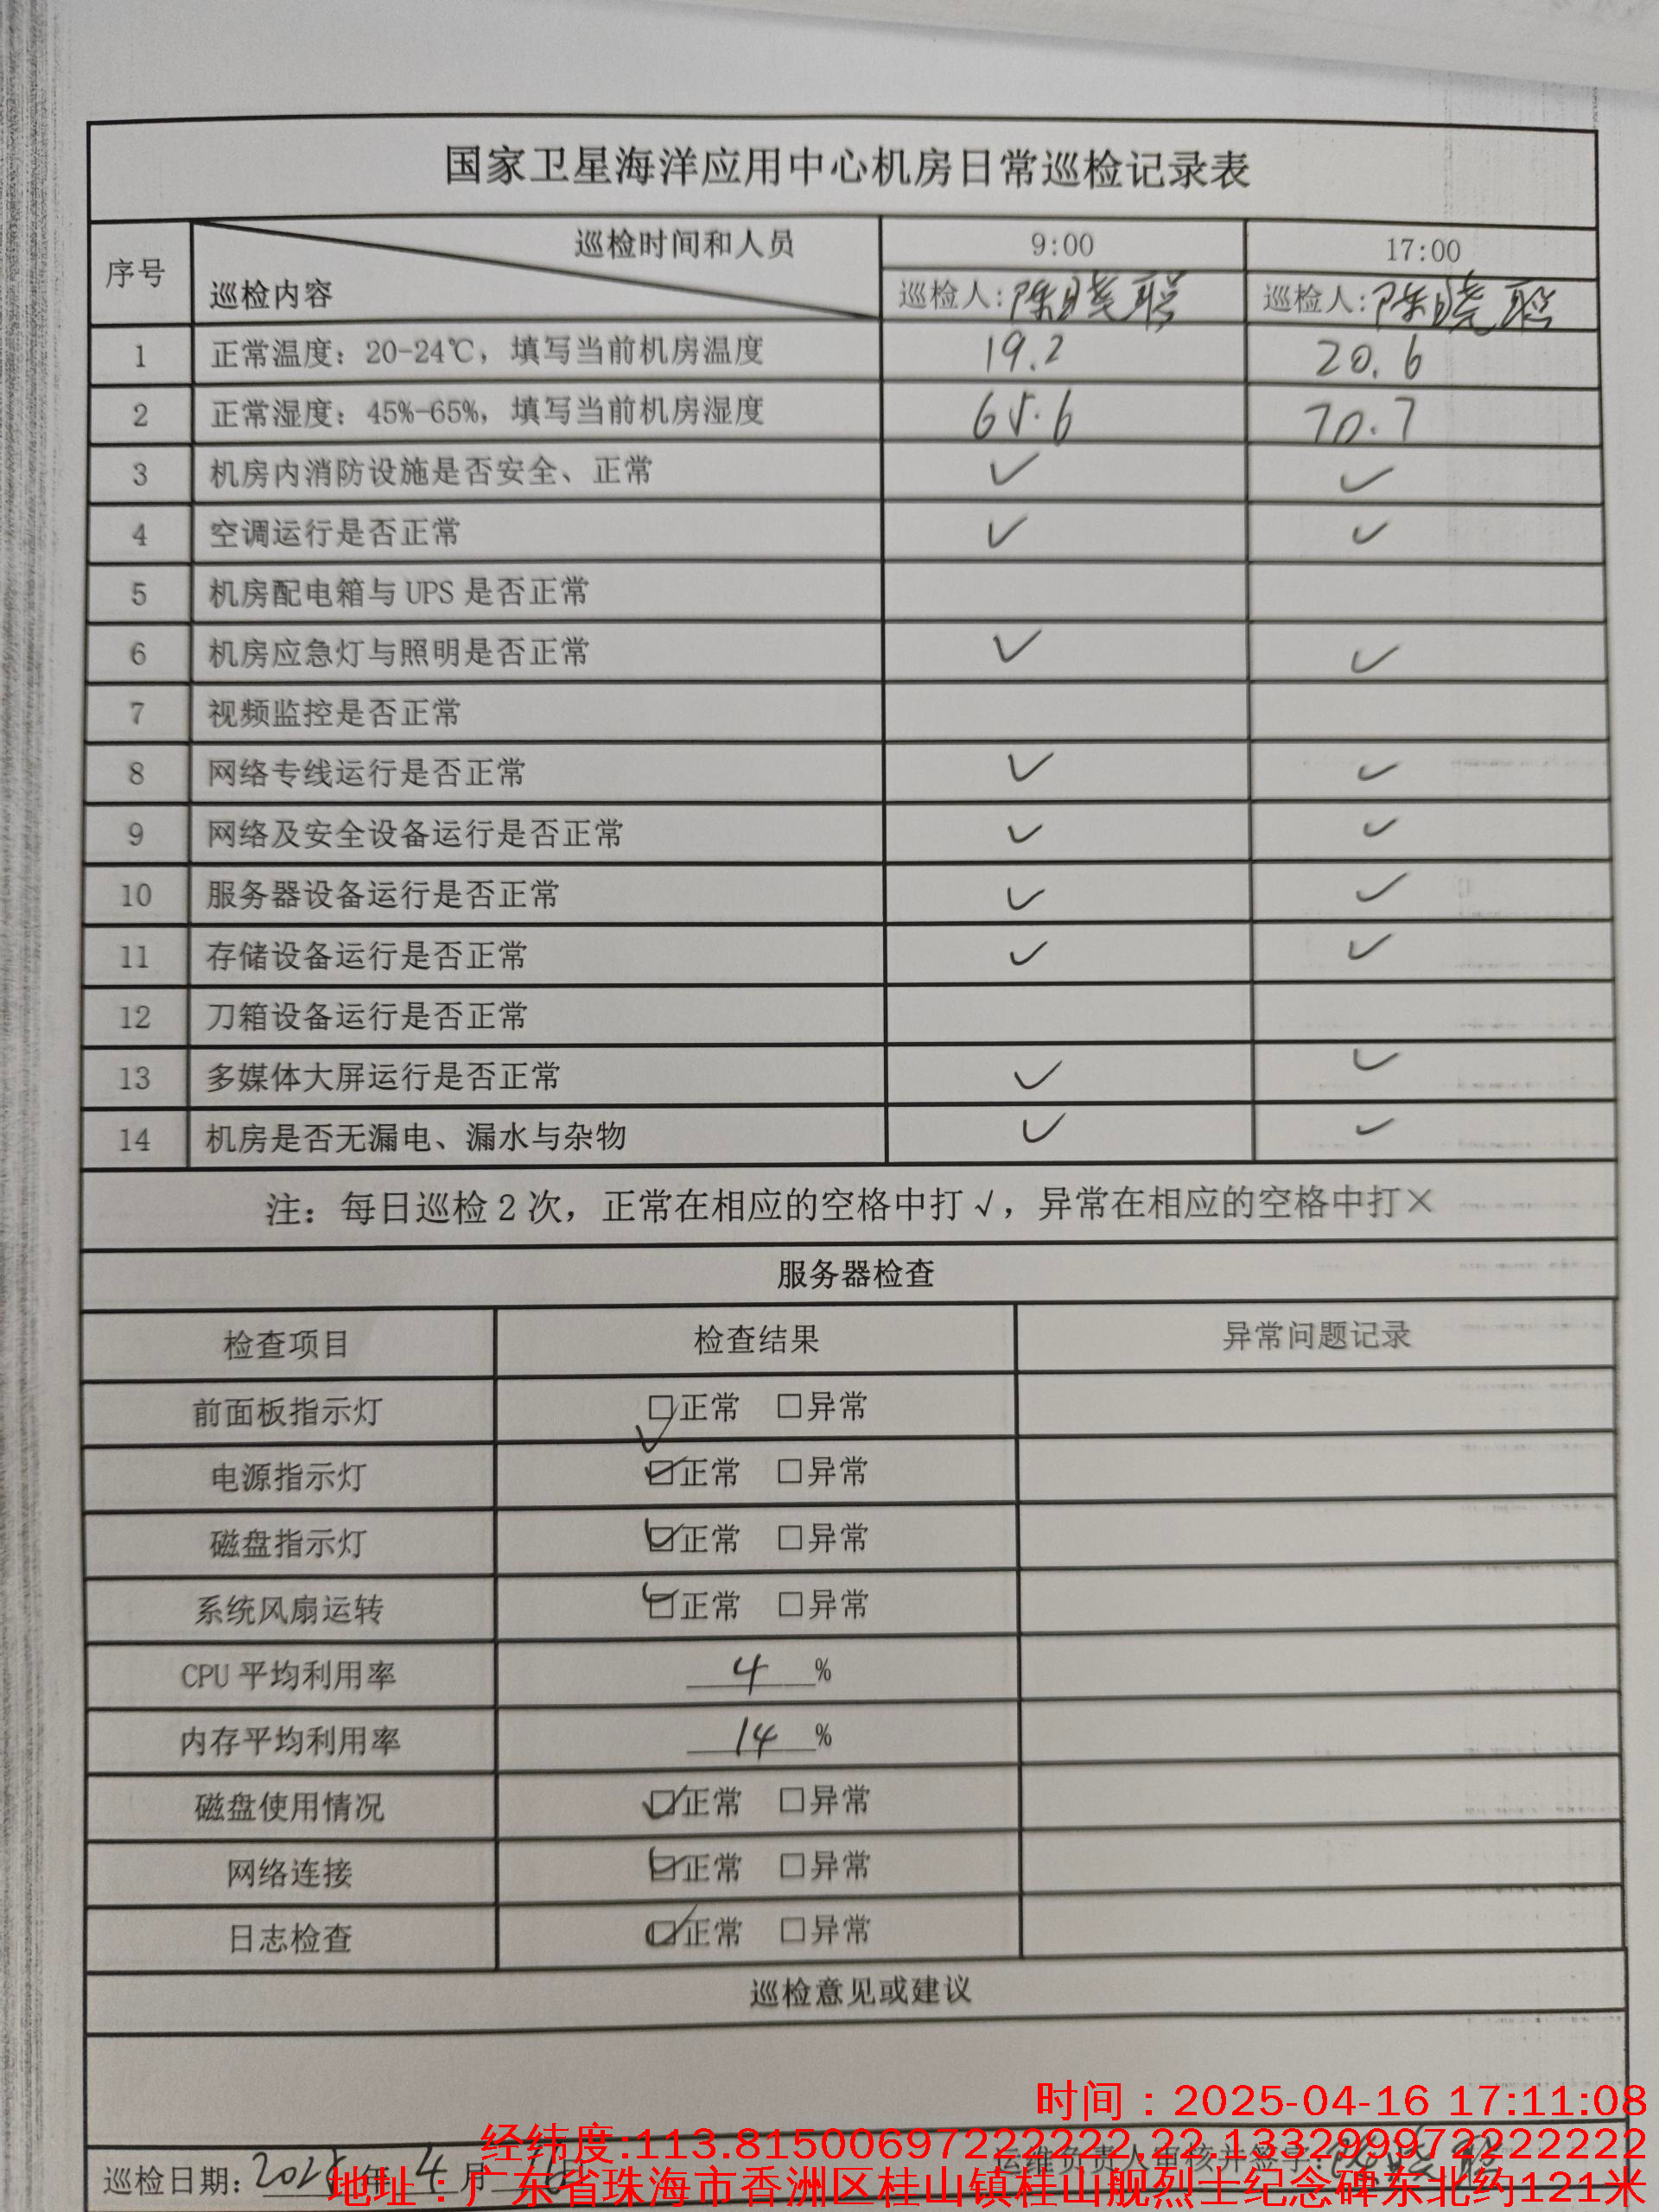 国家卫星海洋应用中心机房日常巡检记录表
序号 巡检时间和人员 巡检内容 9:00 17:00
巡检人:陈晓聪 巡检人:陈晓聪
1 正常温度：20-24℃，填写当前机房温度 19.2 20.6
2 正常湿度：45%-65%，填写当前机房湿度 65.6 70.7
3 机房内消防设施是否安全、正常 ✓ ✓
4 空调运行是否正常 ✓ ✓
5 机房配电箱与 UPS 是否正常
6 机房应急灯与照明是否正常 ✓ ✓
7 视频监控是否正常
8 网络专线运行是否正常 ✓ ✓
9 网络及安全设备运行是否正常 ✓ ✓
10 服务器设备运行是否正常 ✓ ✓
11 存储设备运行是否正常 ✓ ✓
12 刀箱设备运行是否正常
13 多媒体大屏运行是否正常 ✓ ✓
14 机房是否无漏电、漏水与杂物 ✓ ✓
注：每日巡检 2 次，正常在相应的空格中打 √，异常在相应的空格中打×
服务器检查
检查项目 检查结果 异常问题记录
前面板指示灯 ☑正常 □异常
电源指示灯 ☑正常 □异常
磁盘指示灯 ☑正常 □异常
系统风扇运转 ☑正常 □异常
CPU 平均利用率 4 %
内存平均利用率 14 %
磁盘使用情况 ☑正常 □异常
网络连接 ☑正常 □异常
日志检查 ☑正常 □异常
巡检意见或建议
时间：2025-04-16 17:11:08
经纬度:113.81500697222222,22.133299972222222
运维负责人审核并签字:陈晓聪
巡检日期: 2025 年 4 月 16 日
地址：广东省珠海市香洲区桂山镇桂山舰烈士纪念碑东北约121米